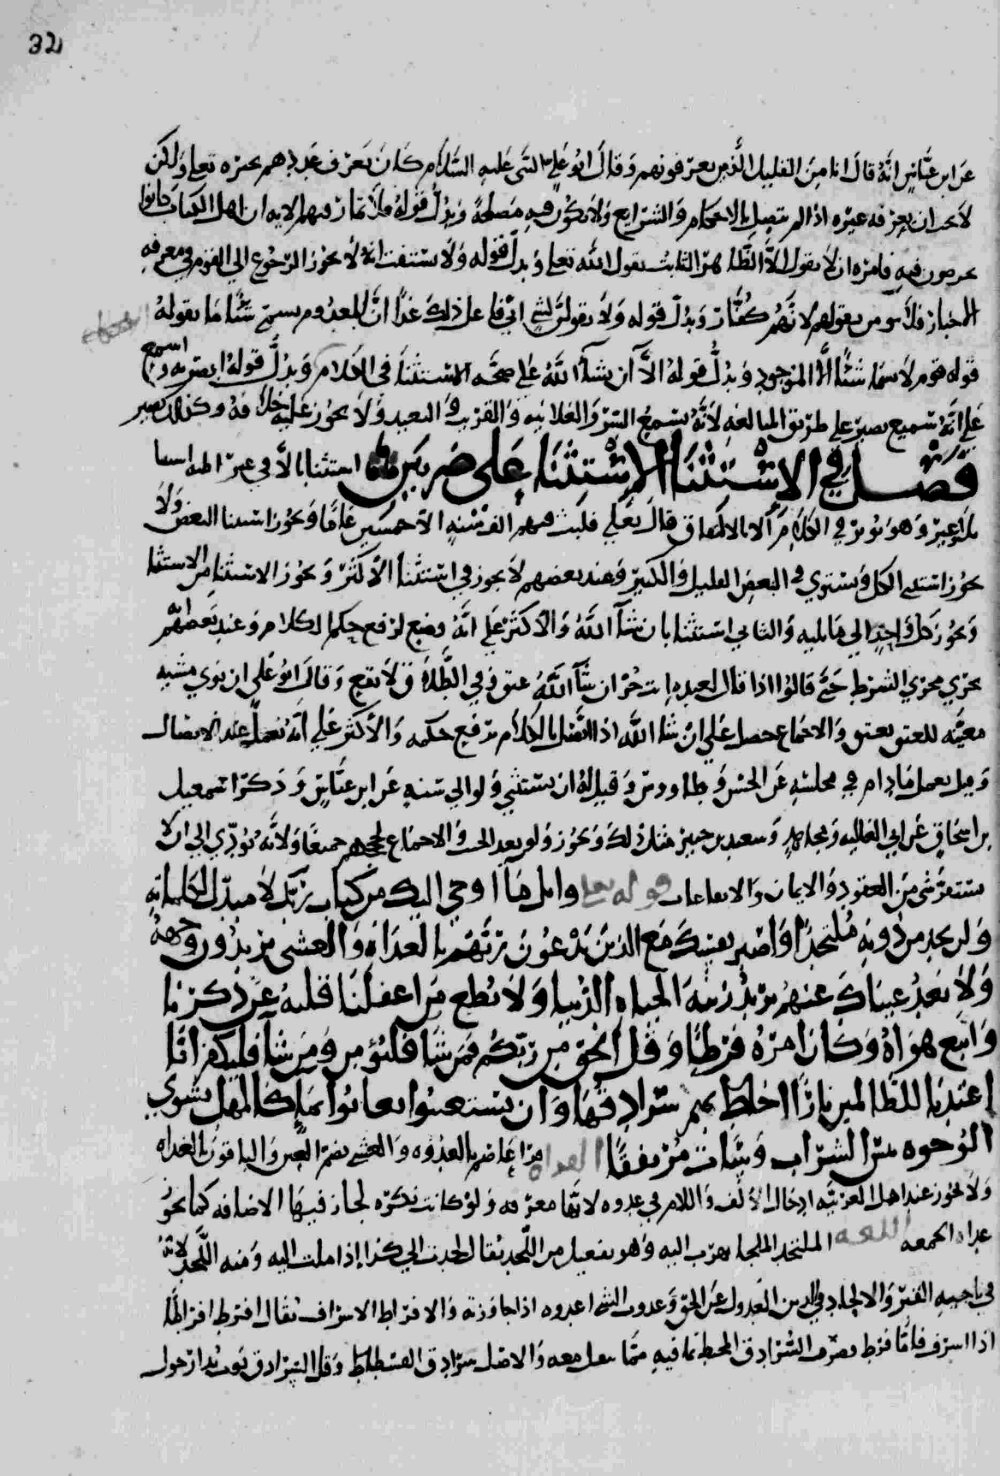 32
عن ابن عباس انه قال انا من القليل الذين يعرفونهم وقال ابو علي النبي عليه السلام كان يعرف عددهم بخبره تعالى ولكن
لا يجب ان يعرفه غيره اذا لم يتصل بالاحكام والشرايع ولا يكون فيه مصلحة ويدل قوله فلا تمار فيهم الايه ان اهل الكتاب كانوا
فيه فامره ان لا يقول الا الظاهر الثابت بقول الله تعالى ويدل قوله ولا تستفت انه لا يجوز الرجوع الى القوم في معرفه
فلا يقولهم لانهم كفار ويدل قوله ولا تقولن لشي اني فاعل ذلك غدا ان المعدوم يسمى شيا ما يقوله
قوله قوم لا يسما شيئا الا الموجود ويدل قوله الا ان يشآ الله على صحة الاستثنا في الكلام ويدل قوله ابصر به واسمع
على انه سميع بصير على طريق المبالغه لانه يسمع السر والعلانيه والقريب والبعيد ولا يجوز عليه خلافه وكذلك بصير
فصل في الاستثنا الاستثنا على ضربين استثنا بالا وغير الا
وهو يوثر في الكلام الا بالاتفاق قال تعالى فلبث فيهم الف سنه الا خمسين عاما ويجوز استثنا البعض ولا
يجوز استثنى الكل ويستوي في البعض القليل والكثير وعند بعضهم لا يجوز في استثنا الاكثر ويجوز الاستثنا من الاستثنا
ويجوز كل واحد الى ما يليه والثاني استثنا بان شآ الله والاكثر على انه وضع لرفع حكم الكلام وعند بعضهم
يجري مجرى الشرط حتى قالوا اذا قال لعبده انت حر ان شآ الله عتق وفي الطلاق لا تقع وقال ابو علي ان نوى مشيه
معينه للعتق يعتق والاجماع حصل على ان شا الله اذا اتصل بالكلام يرفع حكمه والاكثر على انه يعمل عند الاتصال
وقيل يعمل ما دام في مجلسه عن الحسن وطاووس وقيل له ان يستثني ولو الى سنه عن ابن عباس وذكر اسمعيل
بن اسحاق عن ابي العاليه ومجاهد وسعيد بن جبير مثل ذلك ويجوز ولو بعد الحنث والاجماع جميعا ولانه يودي الى ان لا
يستقر شي من العقود والايمان والايقاعات قوله تعالى واتل ما اوحي اليك من كتاب ربك لا مبدل لكلماته
ولن تجد من دونه ملتحدا واصبر نفسك مع الذين يدعون ربهم بالغداه والعشي يريدون وجهه
ولا تعد عيناك عنهم تريد زينه الحياه الدنيا ولا تطع من اغفلنا قلبه عن ذكرنا
واتبع هواه وكان امره فرطا وقل الحق من ربكم فمن شا فليؤمن ومن شآ فليكفر انا
اعتدنا للظالمين نارا احاط بهم سرادقها وان يستغيثوا يغاثوا بماء كالمهل يشوي
الوجوه بئس الشراب وسات مرتفقا القراه قرا عامر بالغدوه والعشي بضم الغين والباقون بالغداه
ولا يجوز عند اهل العربيه ادخال الالف واللام في غدوه لانها معرفه ولو كانت نكره لجاز فيها الاضافه كما يجوز
غداه الجمعه اللغه الملتحد الملجا يهرب اليه وهو مفتعل من اللحد يقال لحدت الى كذا اذا ملت اليه ومنه اللحد لانه
في ناحيه القبر والالحاد في الدين العدول عن الحق وعدوت الشي اعدوه اذا جاوزته والافراط الاسراف يقال افرط افراطا
اذا اسرف فاما فرط السرادق المحيط بما فيه مما ينقل معه والاصل سرادق الفسطاط وقيل السرادق ثوب يدار حول